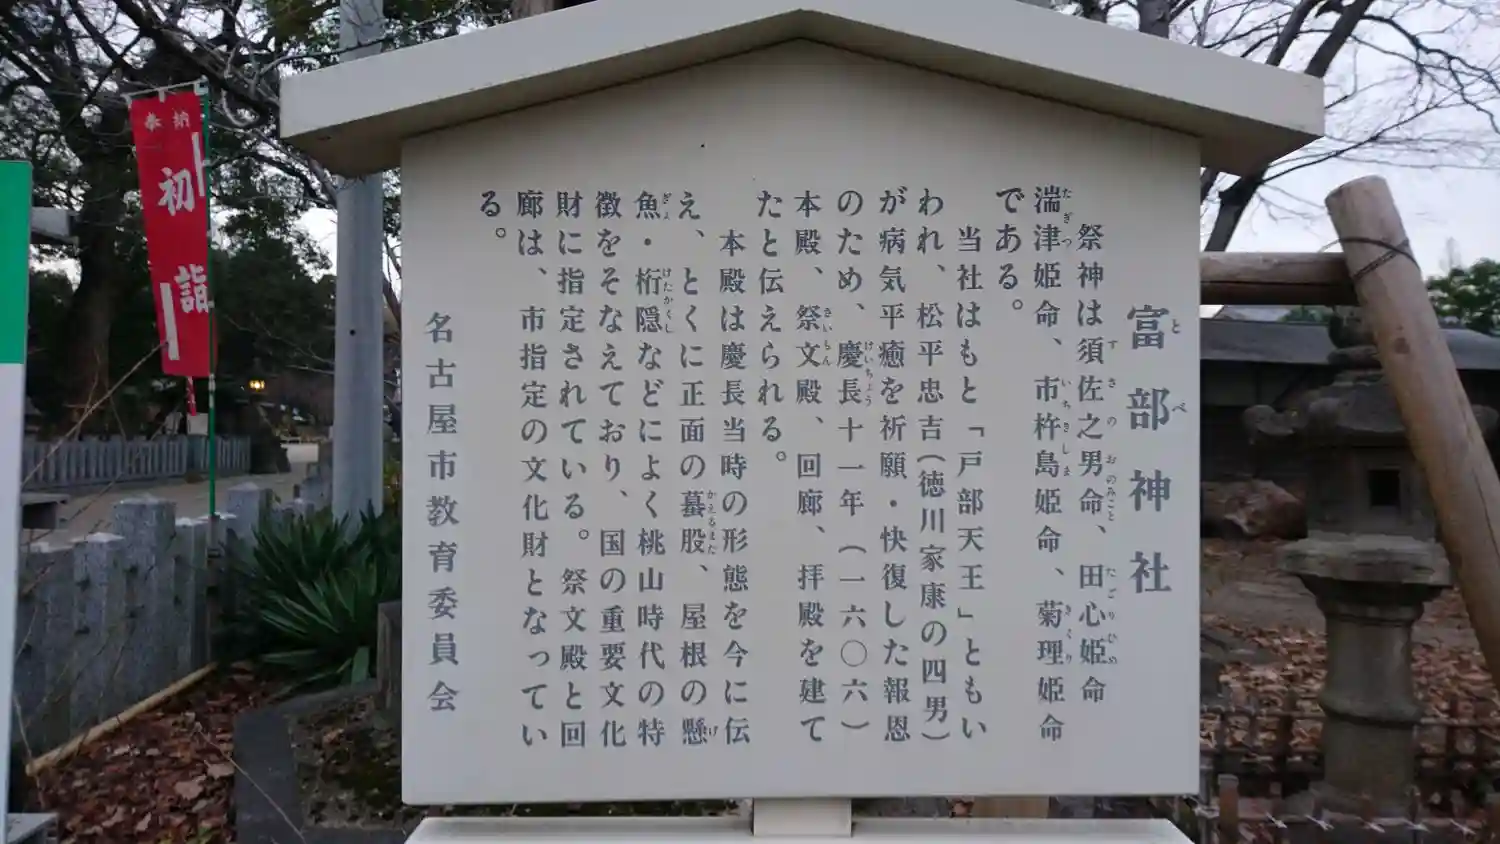 富部神社
とべ
祭神は須佐之男命、田心姫命
すさのおのみこと たごりひめ
湍津姫命、市杵島姫命、菊理姫命
たぎつ いちきしま きくり
である。
当社はもと「戸部天王」ともい
われ、松平忠吉(徳川家康の四男)
が病気平癒を祈願・快復した報恩
のため、慶長十一年(一六〇六)
けいちょう
本殿、祭文殿、回廊、拝殿を建て
さいもん
たと伝えられる。
本殿は慶長当時の形態を今に伝
え、とくに正面の蟇股、屋根の懸
かえるまた げ
魚・桁隠などによく桃山時代の特
ぎょ けたかくし
徴をそなえており、国の重要文化
財に指定されている。祭文殿と回
廊は、市指定の文化財となってい
る。
名古屋市教育委員会
奉納
初詣